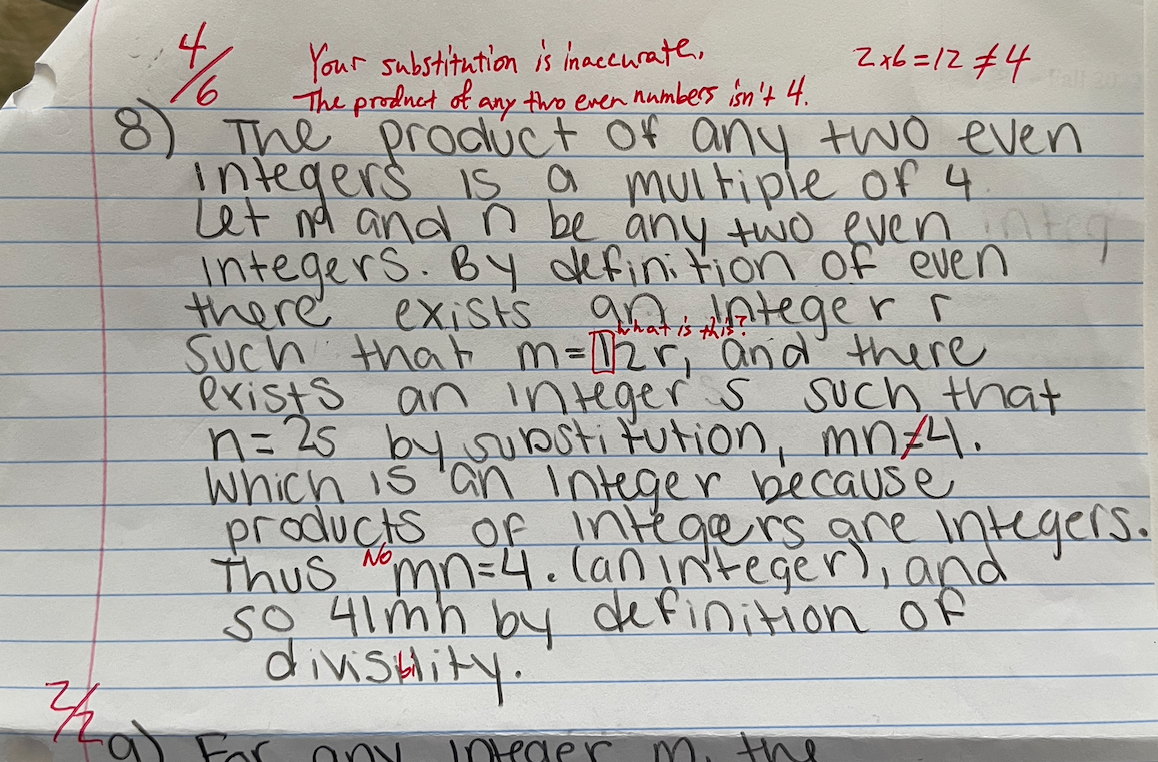 4/6
Your substitution is inaccurate. 2x6=12≠4
The product of any two even numbers isn't 4.
8) The product of any two even
integers is a multiple of 4
Let m and n be any two even
integers. By definition of even
there exists an integer r
what is this?
such that m=12r, and there
exists an integer s such that
n=2s by substitution, mn≠4.
which is an integer because
products of integers are integers.
Thus No mn=4.(an integer), and
so 4|mn by definition of
divisibility.
2/2
9) For any integer m, the